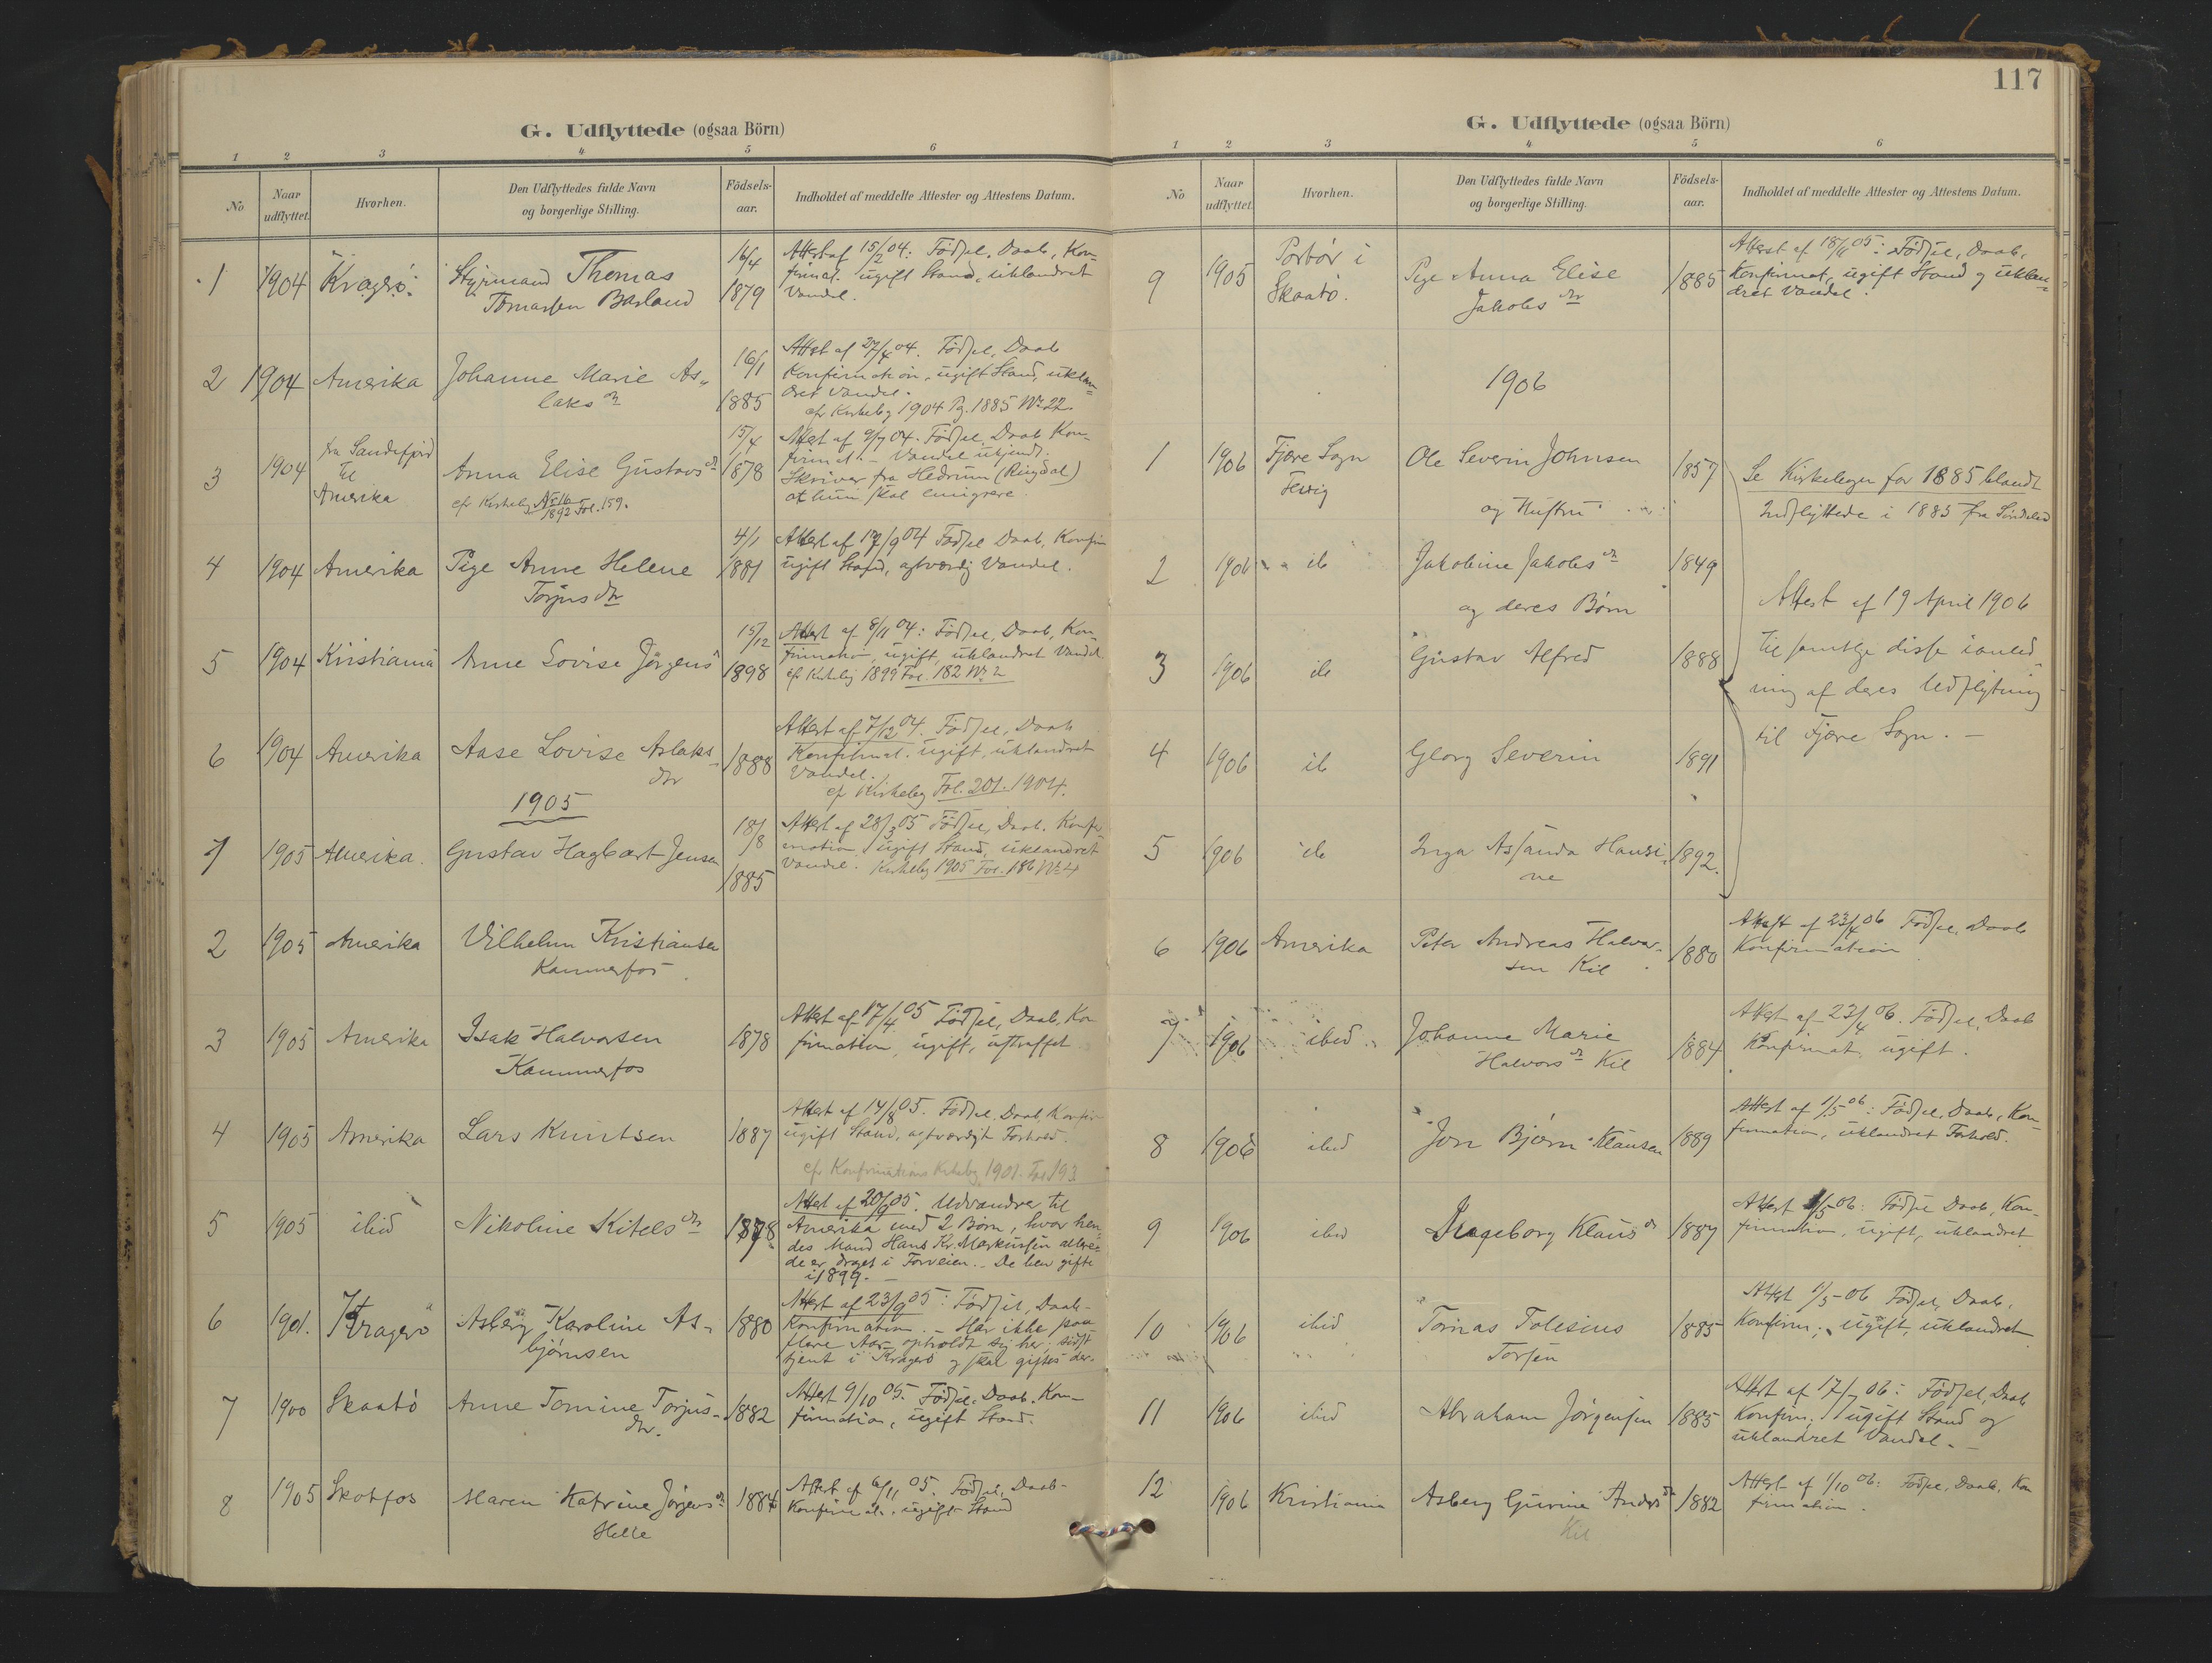 G. Udflyttede (ogsaa Börn)
1 2 3 4 5 6
No
Naar udflyttet.
Hvorhen.
Den Udflyttedes fulde Navn og borgerlige Stilling.
Födsels-aar.
Indholdet af meddelte Attester og Attestens Datum.
1 1904 Kragerø. Styrmand Thomas
Tomassen Barland
16/4 1879
Attest af 15/2 04: Fødsel, Daab, Kon-
firmat. ugift Stand, uklandret
Vandel.
2 1904 Amerika Johanne Marie As-
laksdr
16/1 1885
Attest af 27/4 04. Fødsel, Daab
Konfirmation, ugift Stand, uklan-
dret Vandel.
cfr Kirkebog 1904 Pg. 1885 No 22.
3 1904 fra Sandefjord
til
Amerika
Anna Elise Gustavsdr
cfr Kirkebog No 16 1892 Fol. 159.
15/4 1878
Attest af 9/7 04. Fødsel, Daab Kon-
firmat. - Vandel ukjendt.
Skriver fra Hedrum (Ringdal)
at hun skal emigrere.
4 1904 Amerika Pige Anne Helene
Torjusdr
4/1 1881
Attest af 17/9 04 Fødsel Daab, Konfirm
ugift Stand, agtværdig Vandel.
5 1904 Kristiania Anne Lovise Jörgens
15/12 1898
Attest af 8/11 04: Fødsel, Daab, Kon-
firmation, ugift, uklandret Vandel
cfr Kirkebog 1899 Fol. 182 No 2
6 1904 Amerika Aase Lovise Aslaks-
dr
1888
Attest af 7/12 04. Fødsel, Daab
Konfirmat. ugift, uklandret
Vandel.
cfr Kirkebog Fol. 201. 1904.
1905
1 1905 Amerika. Gustav Hagbart Jensen
18/8 1885
Attest af 28/3 05 Fødsel, Daab. Konfir-
mation ugift Stand, uklandret
Vandel. Kirkebog 1905 Fol. 186 No 4
2 1905 Amerika Vilhelm Kristiansen
Kammerfos.
3 1905 Amerika Isak Halvorsen
Kammerfos
1878
Attest af 17/4 05 Fødsel, Daab, Kon
firmation, ugift, ustraffet
4 1905 Amerika Lars Knutsen 1887
Attest af 14/8 05. Fødsel, Daab, Konfir
ugift Stand, agtværdigt Forhold.
cfr Konfirmations Kirkebog 1901. Fol 193
5 1905 ibid Nikoline Kitelsdr 1878
Attest af 20/9 05. Udvandrer til
Amerika med 2 Børn, hvor hen-
des Mand Hans Kr. Markussen allere-
de er draget i Forveien. - De blev gifte
i 1899. -
6 1901. Kragerø Asberg Karoline As-
bjørnsen
1880
Attest af 23/9 05: Fødsel, Daab-
Konfirmation. - Har ikke paa
flere Aar opholdt sig her, sidst
tjent i Kragerø og skal giftes der.
7 1900 Skaatö Anne Tomine Torjus-
dr.
1882
Attest 9/10 05. Fødsel, Daab. Kon-
firmation, ugift Stand.
8 1905 Skotfos Maren Katrine Jörgensdr
Helle
1884
Attest af 6/11 05. Fødsel, Daab-
Konfirmat., ugift Stand
117
G. Udflyttede (ogsaa Börn)
1 2 3 4 5 6
No
Naar udflyttet.
Hvorhen.
Den Udflyttedes fulde Navn og borgerlige Stilling.
Födsels-aar.
Indholdet af meddelte Attester og Attestens Datum.
9 1905 Portör i
Skaatö.
Pige Anna Elise
Jakobsdr
1885
Attest af 18/11 05: Fødsel, Daab,
Konfirmat, ugift Stand og uklan-
dret Vandel.
1906
1 1906 Fjære Sogn
Fevig
Ole Severin Johnsen 1857
og Hustru
Se Kirkebogen for 1885 blandt
Indflyttede i 1885 fra Söndeled
2 1906 ib Jakobine Jakobsdr 1849
og deres Børn
Attest af 19 April 1906
til samtlige disse i anled-
ning af deres Udflytning
til Fjære Sogn. -
3 1906 ib Gustav Alfred 1888
4 1906 ib Georg Severin 1891
5 1906 ib Inga Assanda Hansi-
ne
1892.
6 1906 Amerika Peter Andreas Halvor-
sen Kil
1880
Attest af 23/4 06 Fødsel, Daab
Konfirmation
7 1906 ibid Johanne Marie
Halvorsdr Kil
1884
Attest af 23/4 06. Fødsel, Daab
Konfirmat, ugift.
8 1906 ibid Jon Bjørn Klausen 1889
Attest af 1/5 06: Fødsel, Daab, Kon-
firmation, uklandret Forhold.
9 1906 ibid Ingeborg Klausdr 1887
Attest 1/5 06: Fødsel Daab, Kon-
firmation, ugift, uklandret
10 1906 ibid Tomas Tolesius
Torsen
1885
Attest 1/5-06 Fødsel, Daab,
Konfirm., ugift, uklandret
11 1906 ibid Abraham Jørgensen 1885
Attest af 17/7 06: Fødsel, Daab
Konfirm., ugift Stand og
uklandret Vandel. -
12 1906 Kristiania Asberg Gurine Andersdr
Kil
1882
Attest af 1/10 06: Fødsel, Daab, Kon
firmation.